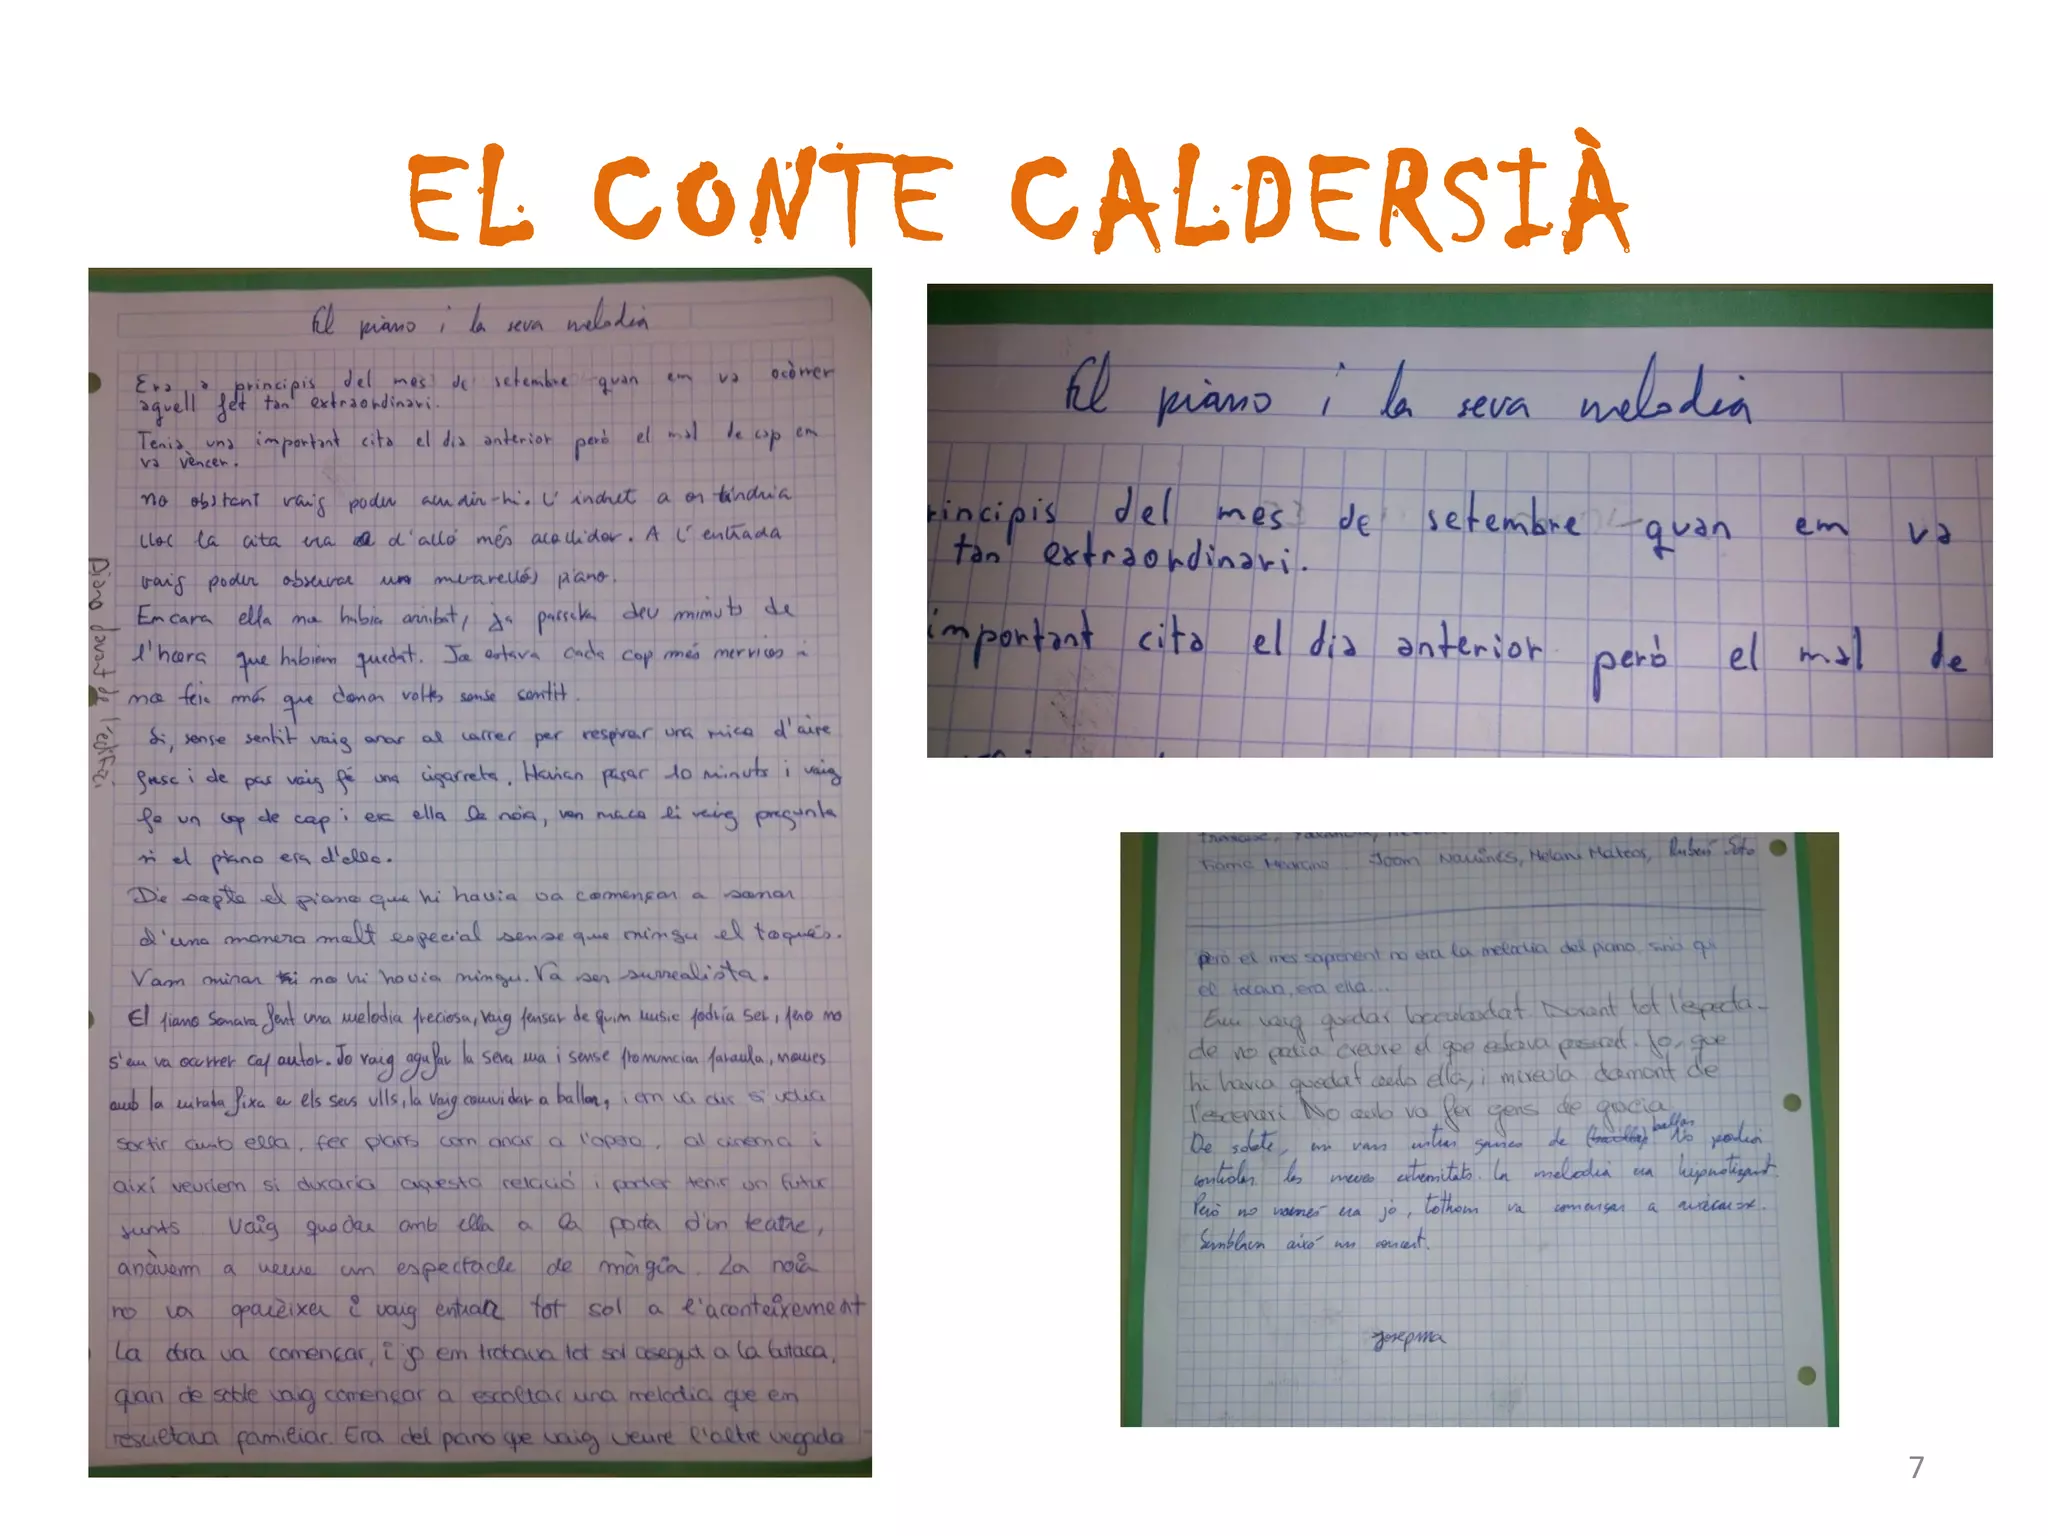 EL CONTE CALDERSIÀ
El piano i la seva melodia
Era a principis del mes de setembre quan em va ocòrrer
aquell fet tan extraordinari.
Tenia una important cita el dia anterior però el mal de cap em
va vèncer.
no obstant vaig poder acudir-hi. L'indret a on tindria
lloc la cita era d'alló més acollidor. A l'entrada
vaig poder observar un meravellós piano.
Encara ella no habia arribat, ja passaba deu minuts de
l'hora que habiem quedat. Jo estava cada cop més nerviós i
no feia més que donar voltes sense sentit.
Si, sense sentit vaig anar al carrer per respirar una mica d'aire
fresc i de pas vaig fé una cigarreta. Havian pasar 10 minuts i vaig
fe un cop de cap i era ella la noia, ven maca li vaig pregunta
si el piano era d'ella.
De sopte el piano que hi havia va començar a sonar
d'una manera molt especial sense que ningu el toqués.
Vam mirar i no hi havia ningu. Va ser surrealista.
El piano sonava fent una melodia preciosa, vaig pensar de quim music podría ser, pero no
s'em va ocurrer cap autor. Jo vaig agafar la seva ma i sense pronunciar paraula, nomes
amb la mirada fixa en els seus ulls, la vaig convidar a ballar, i em va dir si volia
sortir amb ella, fer plans com anar a l'opera, al cinema i
així veuriem si duraria aquesta relació i poder tenir un futur
junts. Vaig quedar amb ella a la porta d'un teatre,
anàvem a veure un espectacle de màgia. La noia
no va aparèixer i vaig entrar tot sol a l'aconteixement
La obra va començar, i jo em trobava tot sol assegut a la butaca,
quan de sobte vaig començar a escoltar una melodia que em
resultava familiar. Era del piano que vaig veure l'altre vegada
Piano davant de l'esglési
El piano i la seva melodia
rincipis del mes de setembre quan em va
tan extraordinari.
important cita el dia anterior però el mal de
Joan Mauiñes, Melani Mateos, Rubén Soto
però el mes sorprenent no era la melodia del piano, sinó qui
el tocava, era ella...
Em vaig quedar bocabadat. Durant tot l'especta-
cle no podia creure el que estava passant. Jo, que
hi havia quedat amb ella, i mireula damont de
l'escenari. No amb va fer gens de gracia
De sobte, em van entrar ganes de ballar. No podia
controlar les meves extremitats. La melodia era hipnotizant.
Però no només era jo, tothom va començar a
Semblava això un concert.
Josepma
7